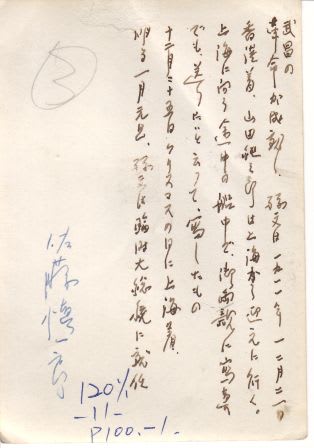 武昌の
革命が成功し 孫文は一九一一年一二月二一日
香港着、山田純三郎は上海から迎えに行く。
上海に向う途中の船中で、御両親に写真
でも送りたいと云って、写したもの
十二月二十五日クリスマスの日に上海着。
明る一月元旦、孫文は臨時大総統に就任
③
佐藤慎一郎
120%
-11-
P100.-1.